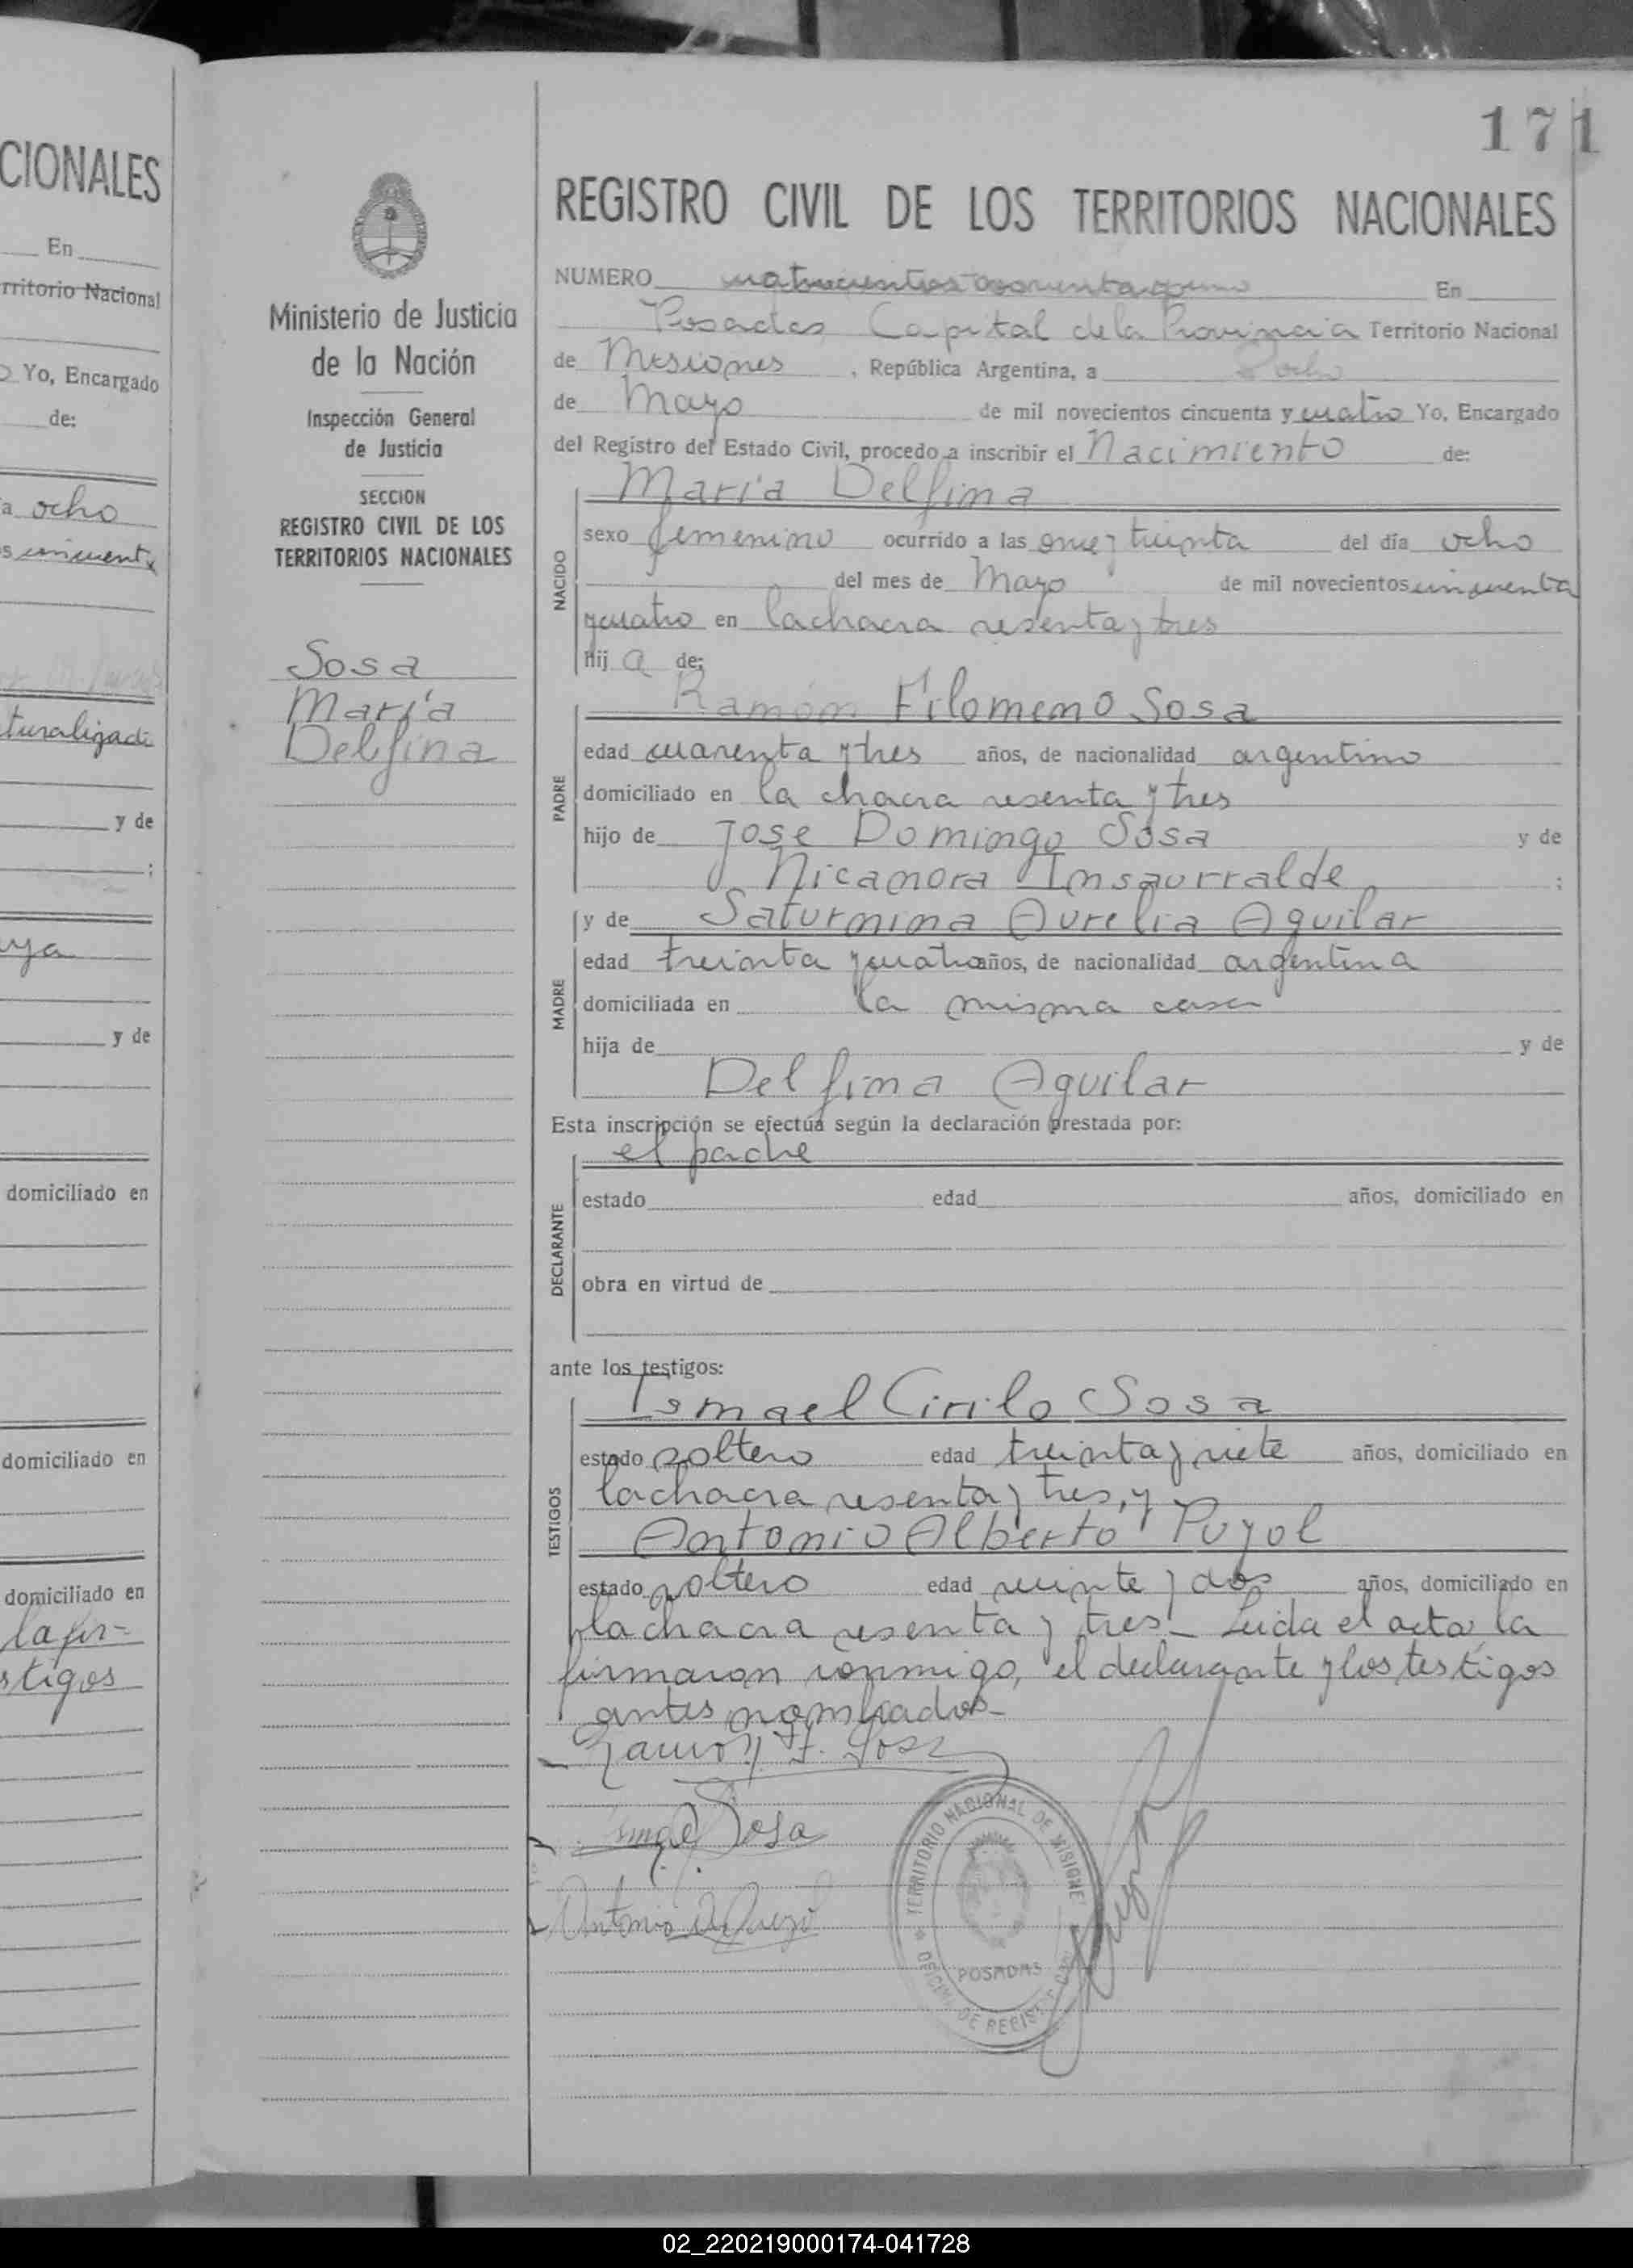 171
CIONALES
En
rritorio Nacional
Yo, Encargado
de:
a ocho
s cincuenta
turalizada
y de
:
uya
y de
domiciliado en
domiciliado en
domiciliado en
la fir-
stigos
Ministerio de Justicia
de la Nación
Inspección General
de Justicia
SECCION
REGISTRO CIVIL DE LOS
TERRITORIOS NACIONALES
Sosa
María
Delfina
REGISTRO CIVIL DE LOS TERRITORIOS NACIONALES
NUMERO En
Posadas, Capital de la Provincia Territorio Nacional
de Misiones , República Argentina, a ocho
de Mayo de mil novecientos cincuenta y cuatro Yo, Encargado
del Registro del Estado Civil, procedo a inscribir el Nacimiento de:
NACIDO
María Delfina
sexo femenino ocurrido a las once y treinta del día ocho
del mes de Mayo de mil novecientos cincuenta
y cuatro en la chacra sesenta y tres
hij a de:
PADRE
Ramón Filomeno Sosa
edad cuarenta y tres años, de nacionalidad argentino
domiciliado en la chacra sesenta y tres
hijo de Jose Domingo Sosa y de
Nicanora Insaurralde ;
MADRE
y de Saturnina Aurelia Aguilar
edad treinta y cuatro años, de nacionalidad argentina
domiciliada en la misma casa
hija de y de
Delfina Aguilar
Esta inscripción se efectúa según la declaración prestada por:
DECLARANTE
el padre
estado edad años, domiciliado en
obra en virtud de
ante los testigos:
TESTIGOS
Ismael Cirilo Sosa
estado soltero edad treinta y siete años, domiciliado en
la chacra sesenta y tres, y
Antonio Alberto Pujol
estado soltero edad veinte y dos años, domiciliado en
la chacra sesenta y tres - Leida el acta, la
firmaron conmigo, el declarante y los testigos
antes nombrados-
Ramon F. Sosa
Ismael Sosa
Antonio A. Pujol
TERRITORIO NACIONAL DE MISIONES
POSADAS
02_220219000174-041728